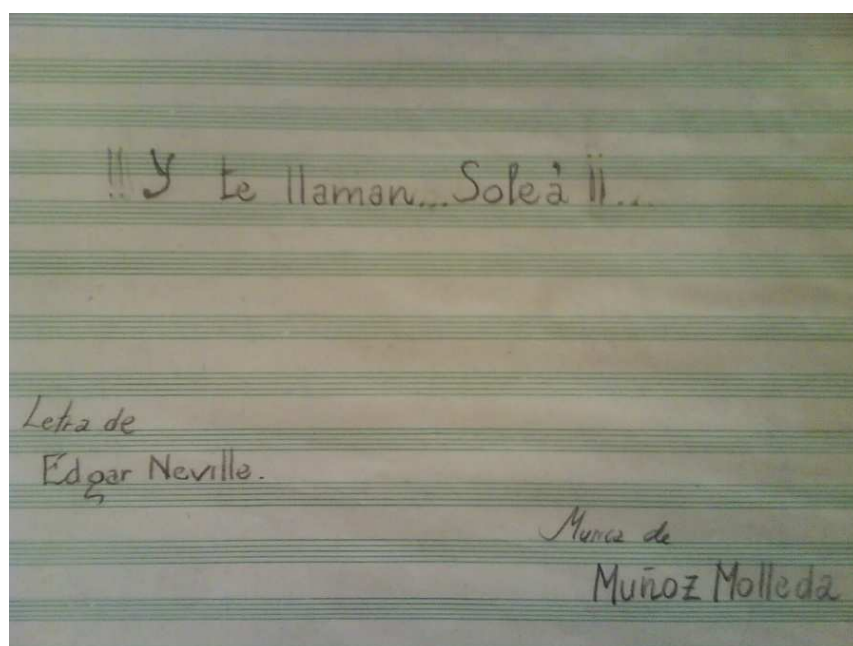 !!! Y te llaman... Soleá ¡¡...
Letra de
Edgar Neville.
Musica de
Muñoz Molleda